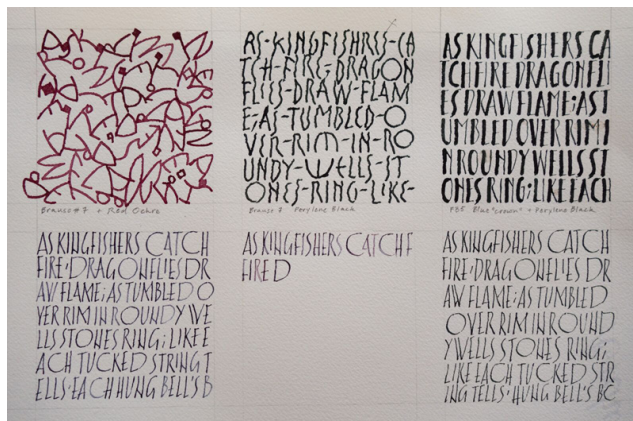 AS-KINGFISHRIS-CA
TCH-FIRE-DRAGON
FLIES-DRAW-FLAM
E;AS-TUMBLED-O
VER-RIM-IN-RO
UNDY-WELLS-ST
ONES-RING-LIKE-
AS KINGFISHERS CA
TCH FIRE DRAGONFLI
ES DRAW FLAME; AS T
UMBLED OVER RIM I
N ROUNDY WELLS ST
ONES RING; LIKE EACH
Brause #7 + Red Ochre
Brause 8 Perylene Black
F66 Blue "crown" + Perylene Black
AS KINGFISHERS CATCH
FIRE, DRAGONFLIES DR
AW FLAME; AS TUMBLED O
VER RIM IN ROUNDY WE
LLS STONES RING; LIKE E
ACH TUCKED STRING T
ELLS, EACH HUNG BELL'S B
AS KINGFISHERS CATCH F
FIRE D
AS KINGFISHERS CATCH
FIRE, DRAGONFLIES DR
AW FLAME; AS TUMBLED
OVER RIM IN ROUND
Y WELLS STONES RING;
LIKE EACH TUCKED STR
ING TELLS, HUNG BELL'S BC